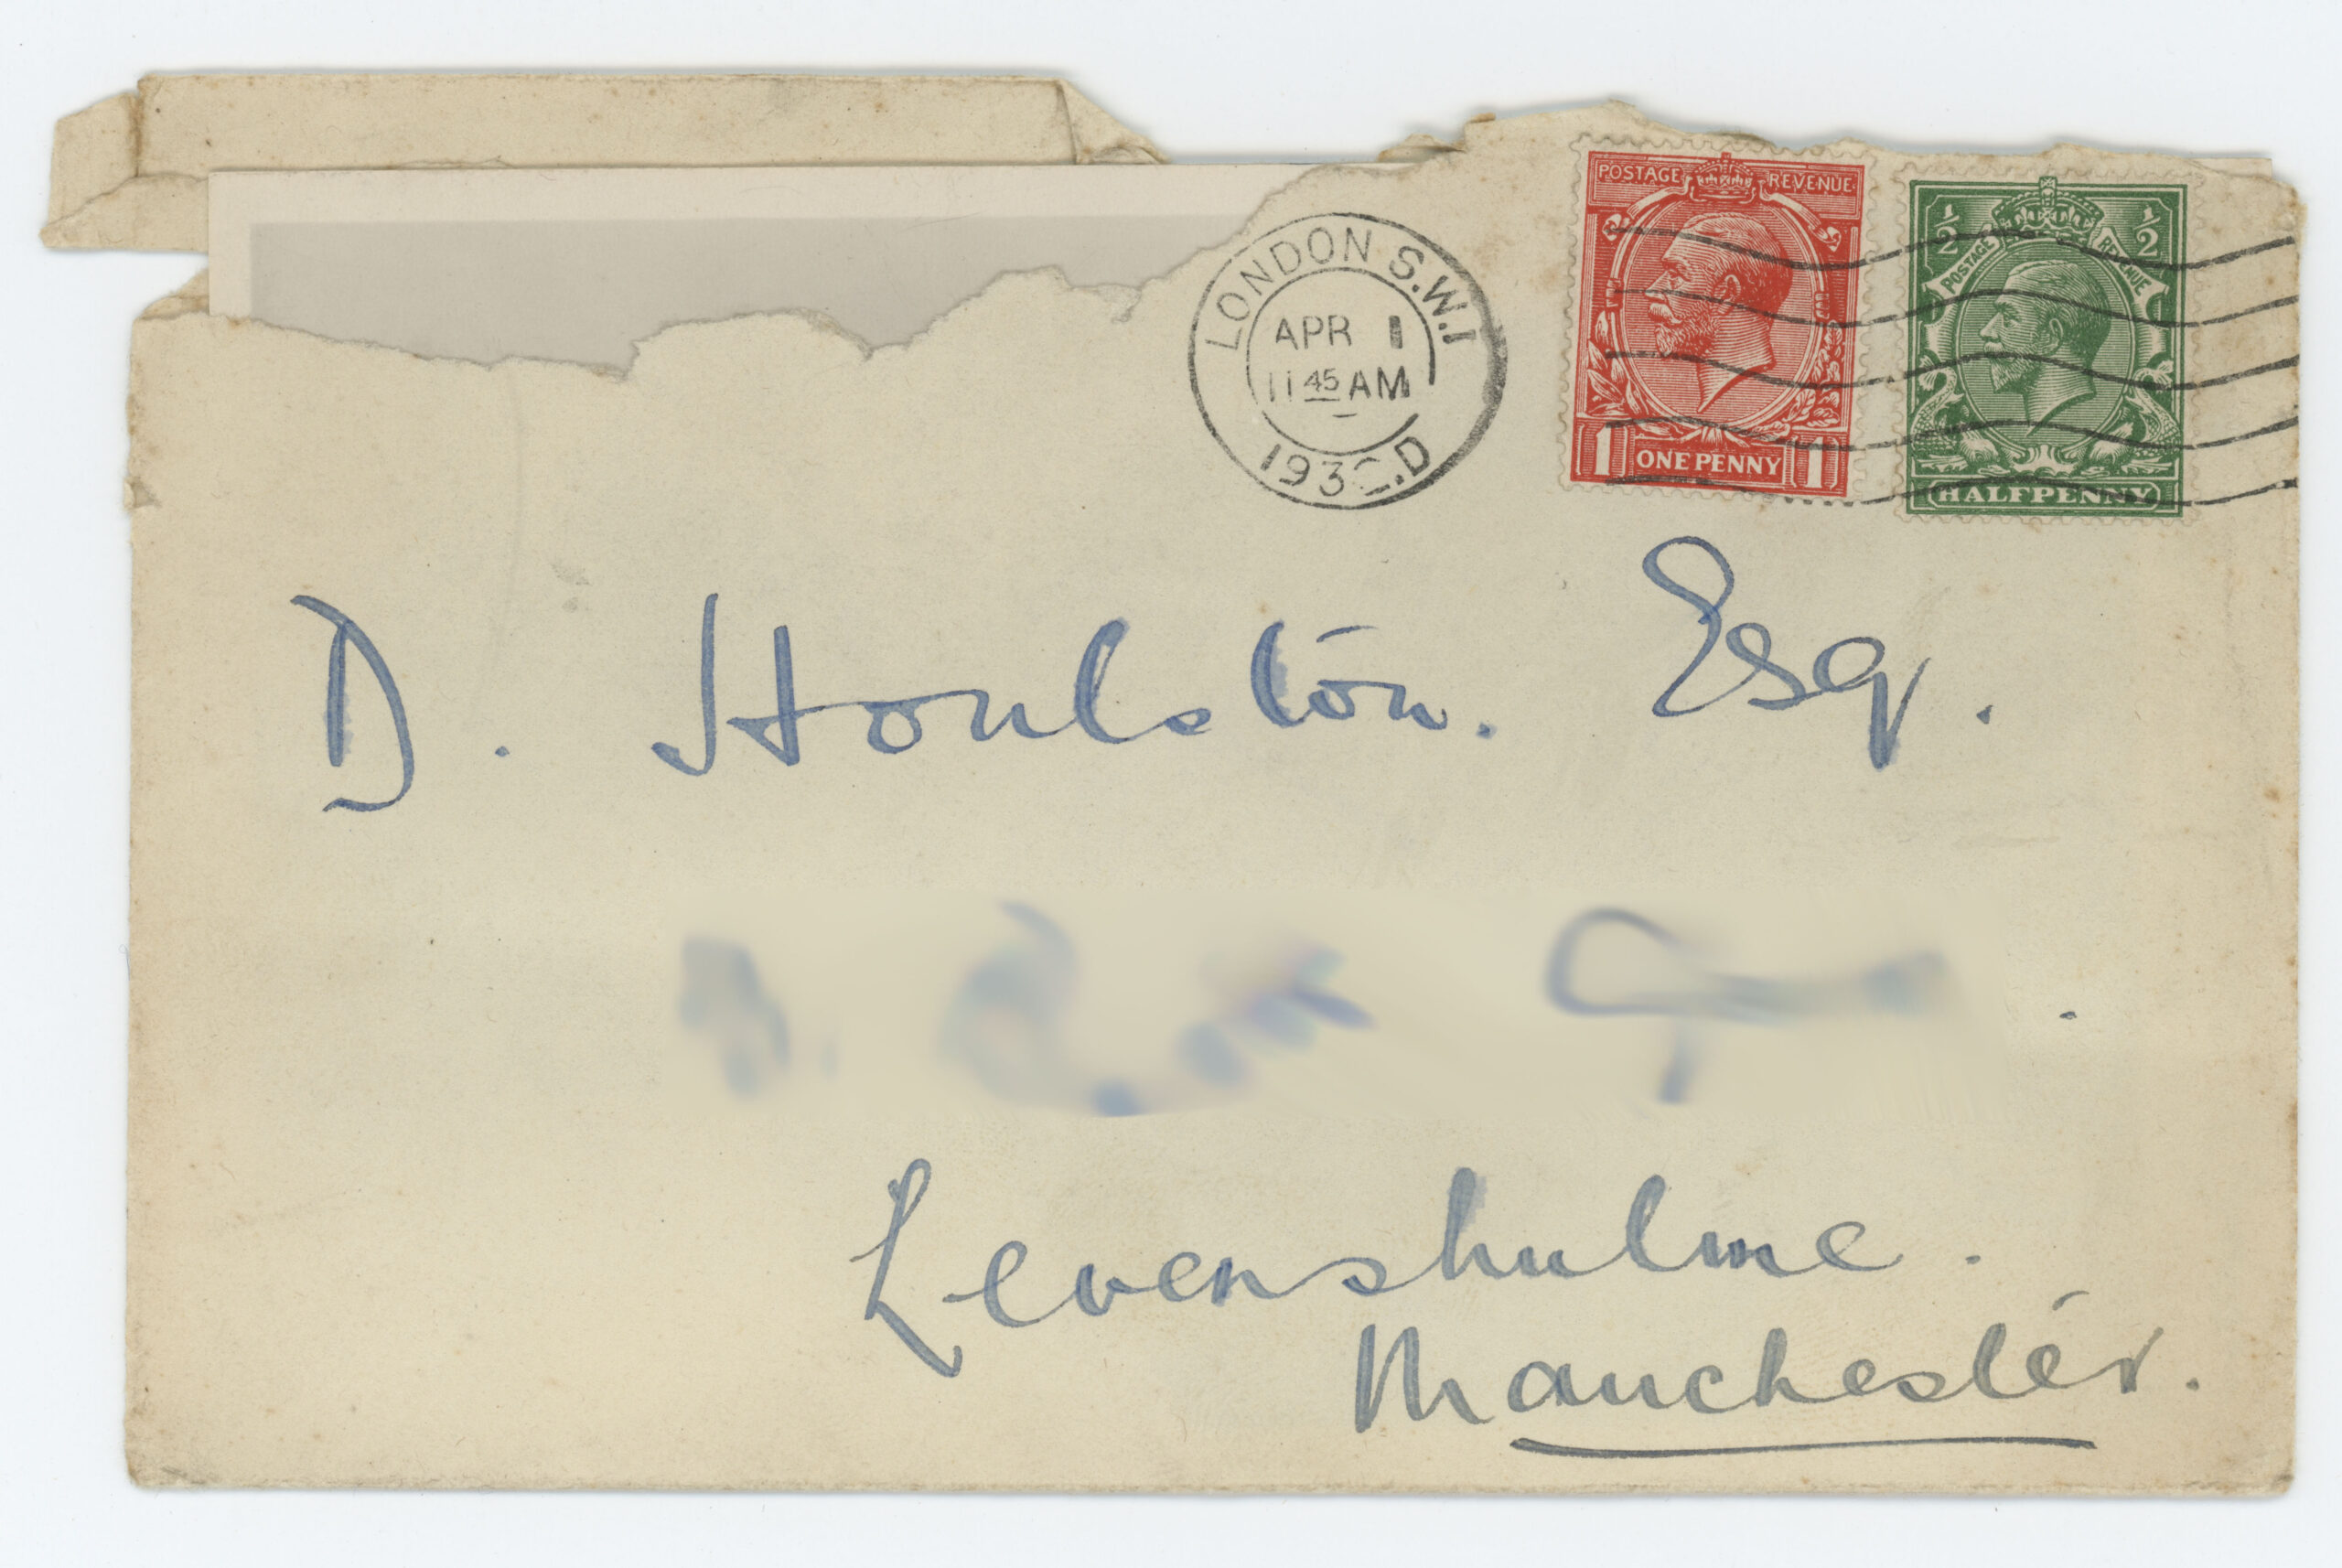 LONDON S.W.1
APR 1
11 45 AM
193 .D
POSTAGE REVENUE
1 ONE PENNY 1
½ ½
POSTAGE REVENUE
HALFPENNY
D. Houlston. Esq.
Levenshulme.
Manchester.